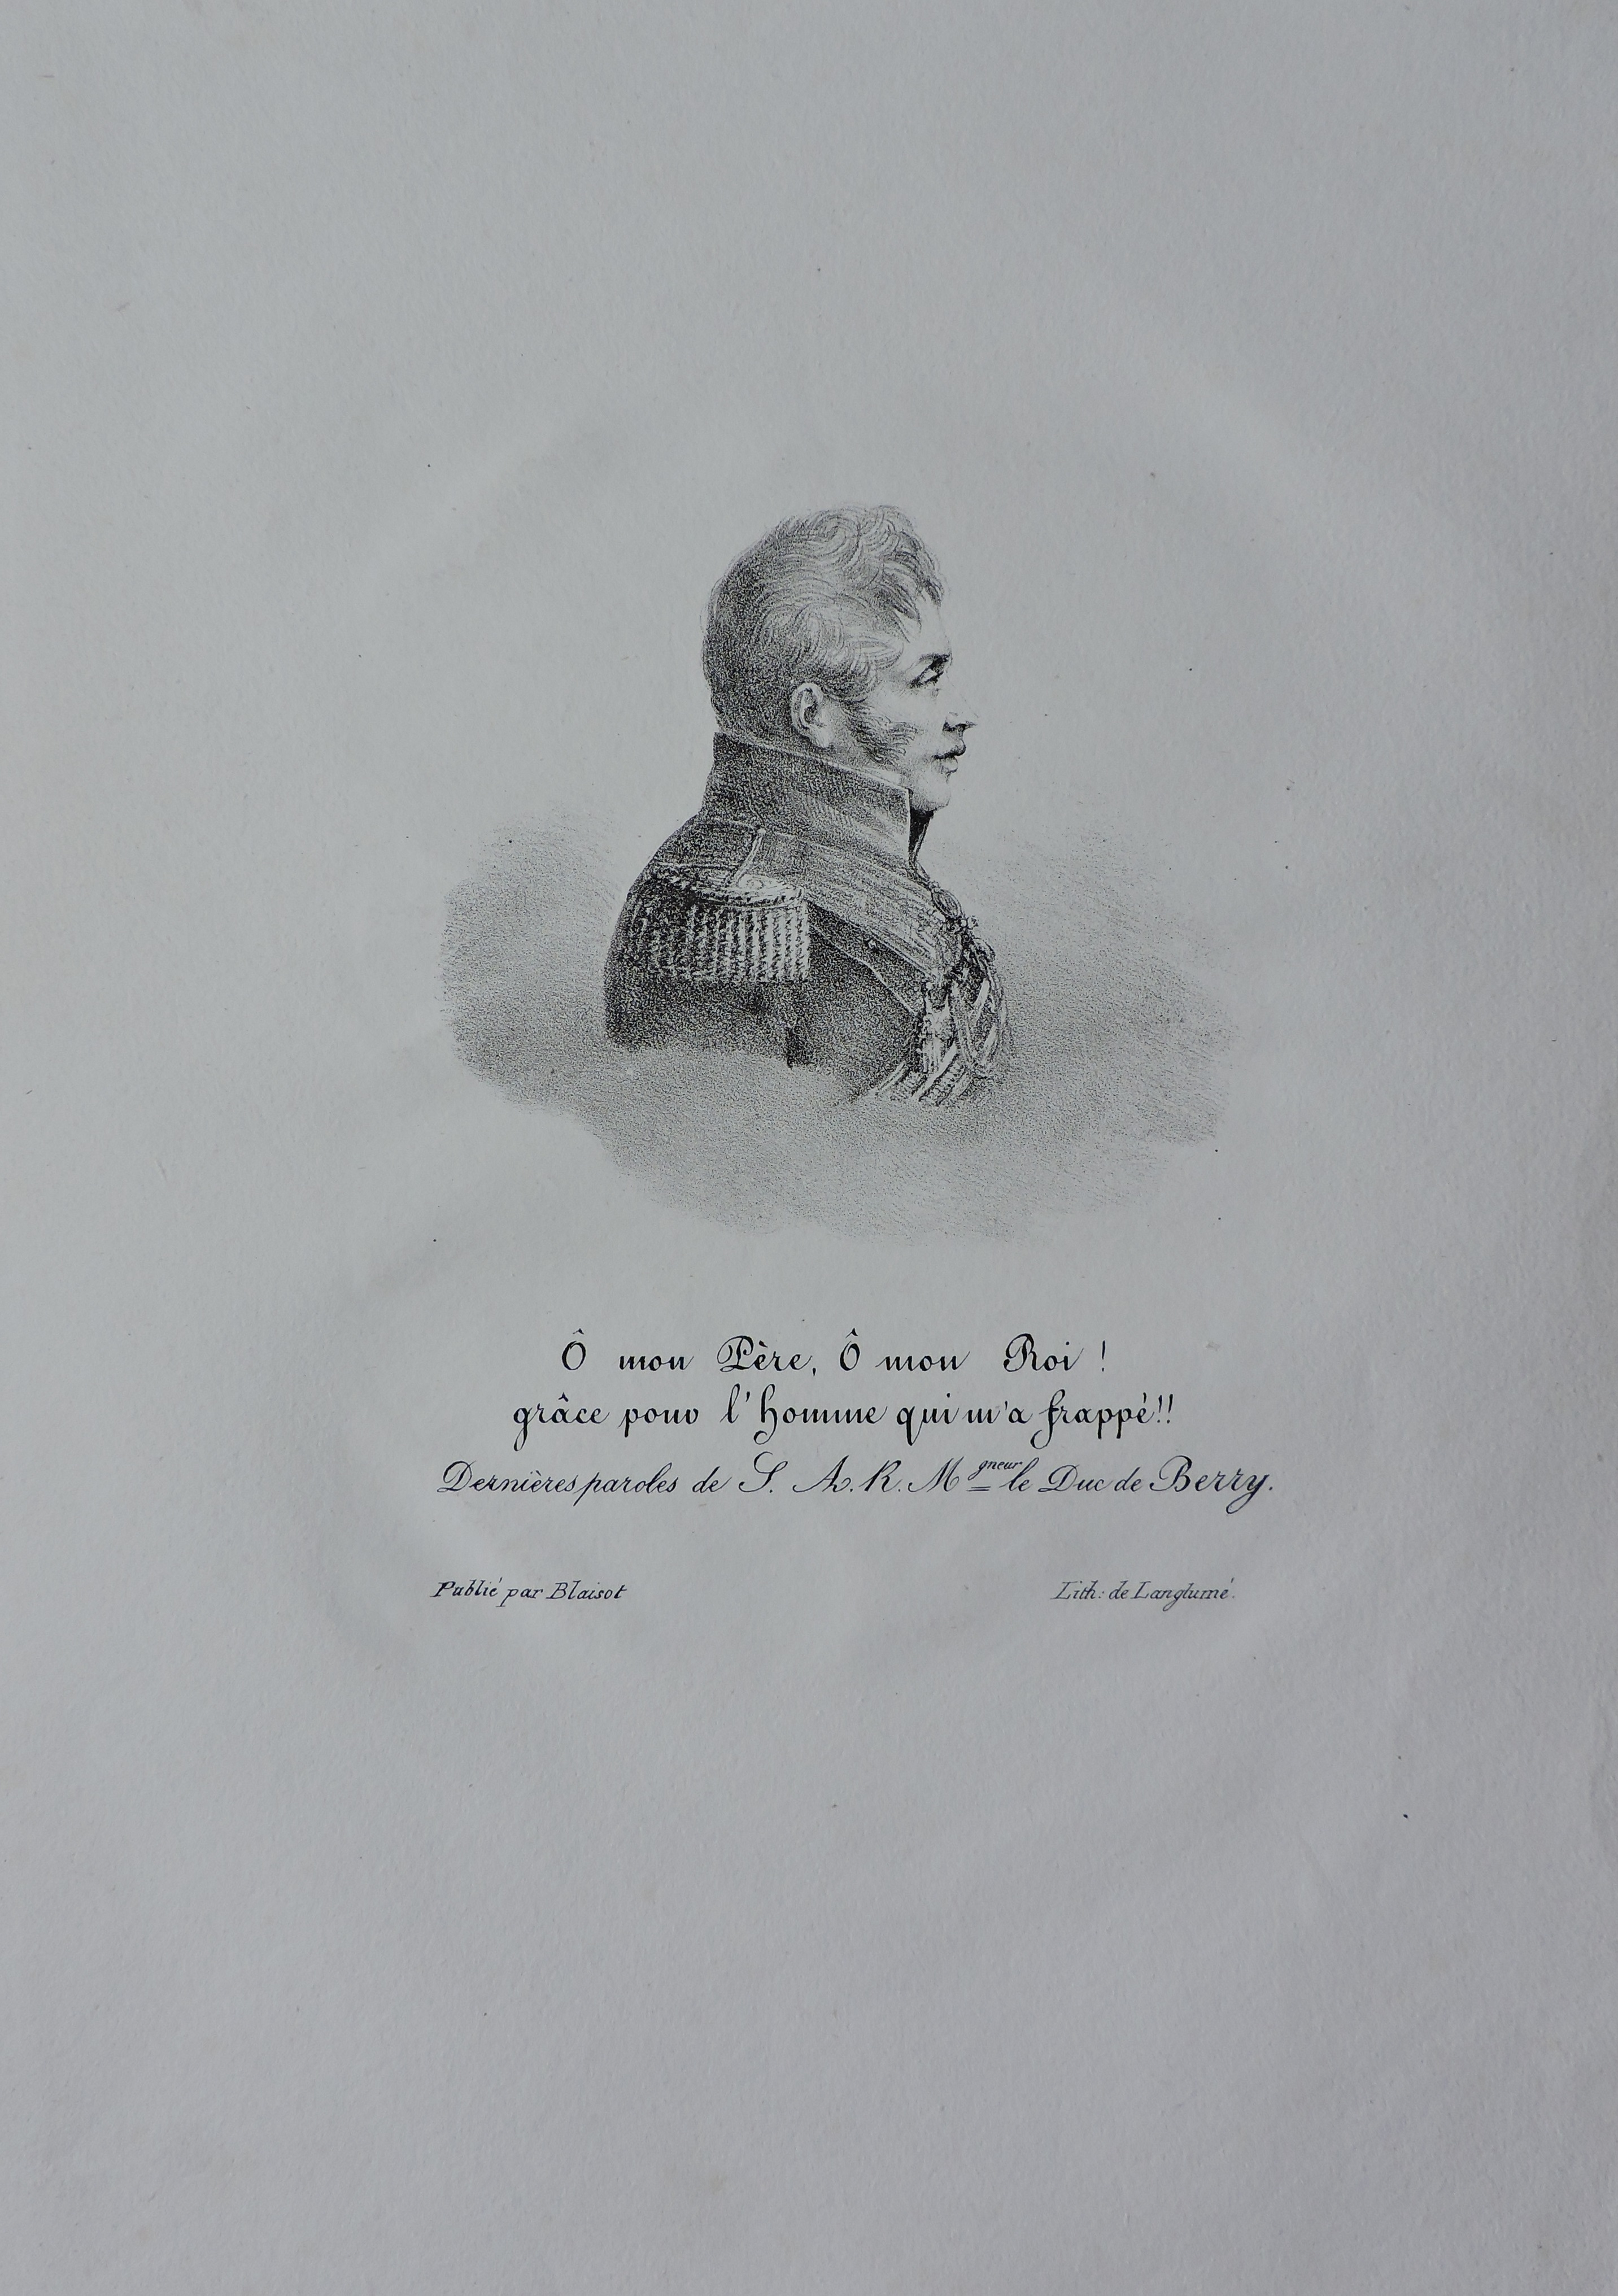 Ô mon Père, Ô mon Roi !
grâce pour l'homme qui m'a frappé!!
Dernières paroles de S. A. R. Mgneur le Duc de Berry.
Publié par Blaisot
Lith: de Langlumé.